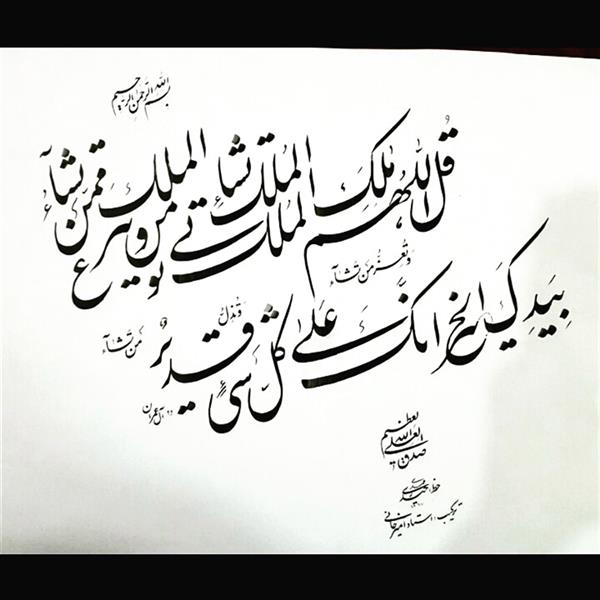 بسم الله الرحمن الرحیم
قل اللهم ملك الملك تؤتي الملك من تشاء وتنزع الملك ممن تشآء
وتعز من تشآء
وتذل
من تشآء
بِيَدِكَ الخير انك علىٰ كل شيءٍ قديرٌ
آل عمران
صدق الله العلی العظیم
ترکیب: استاد امیرخانی